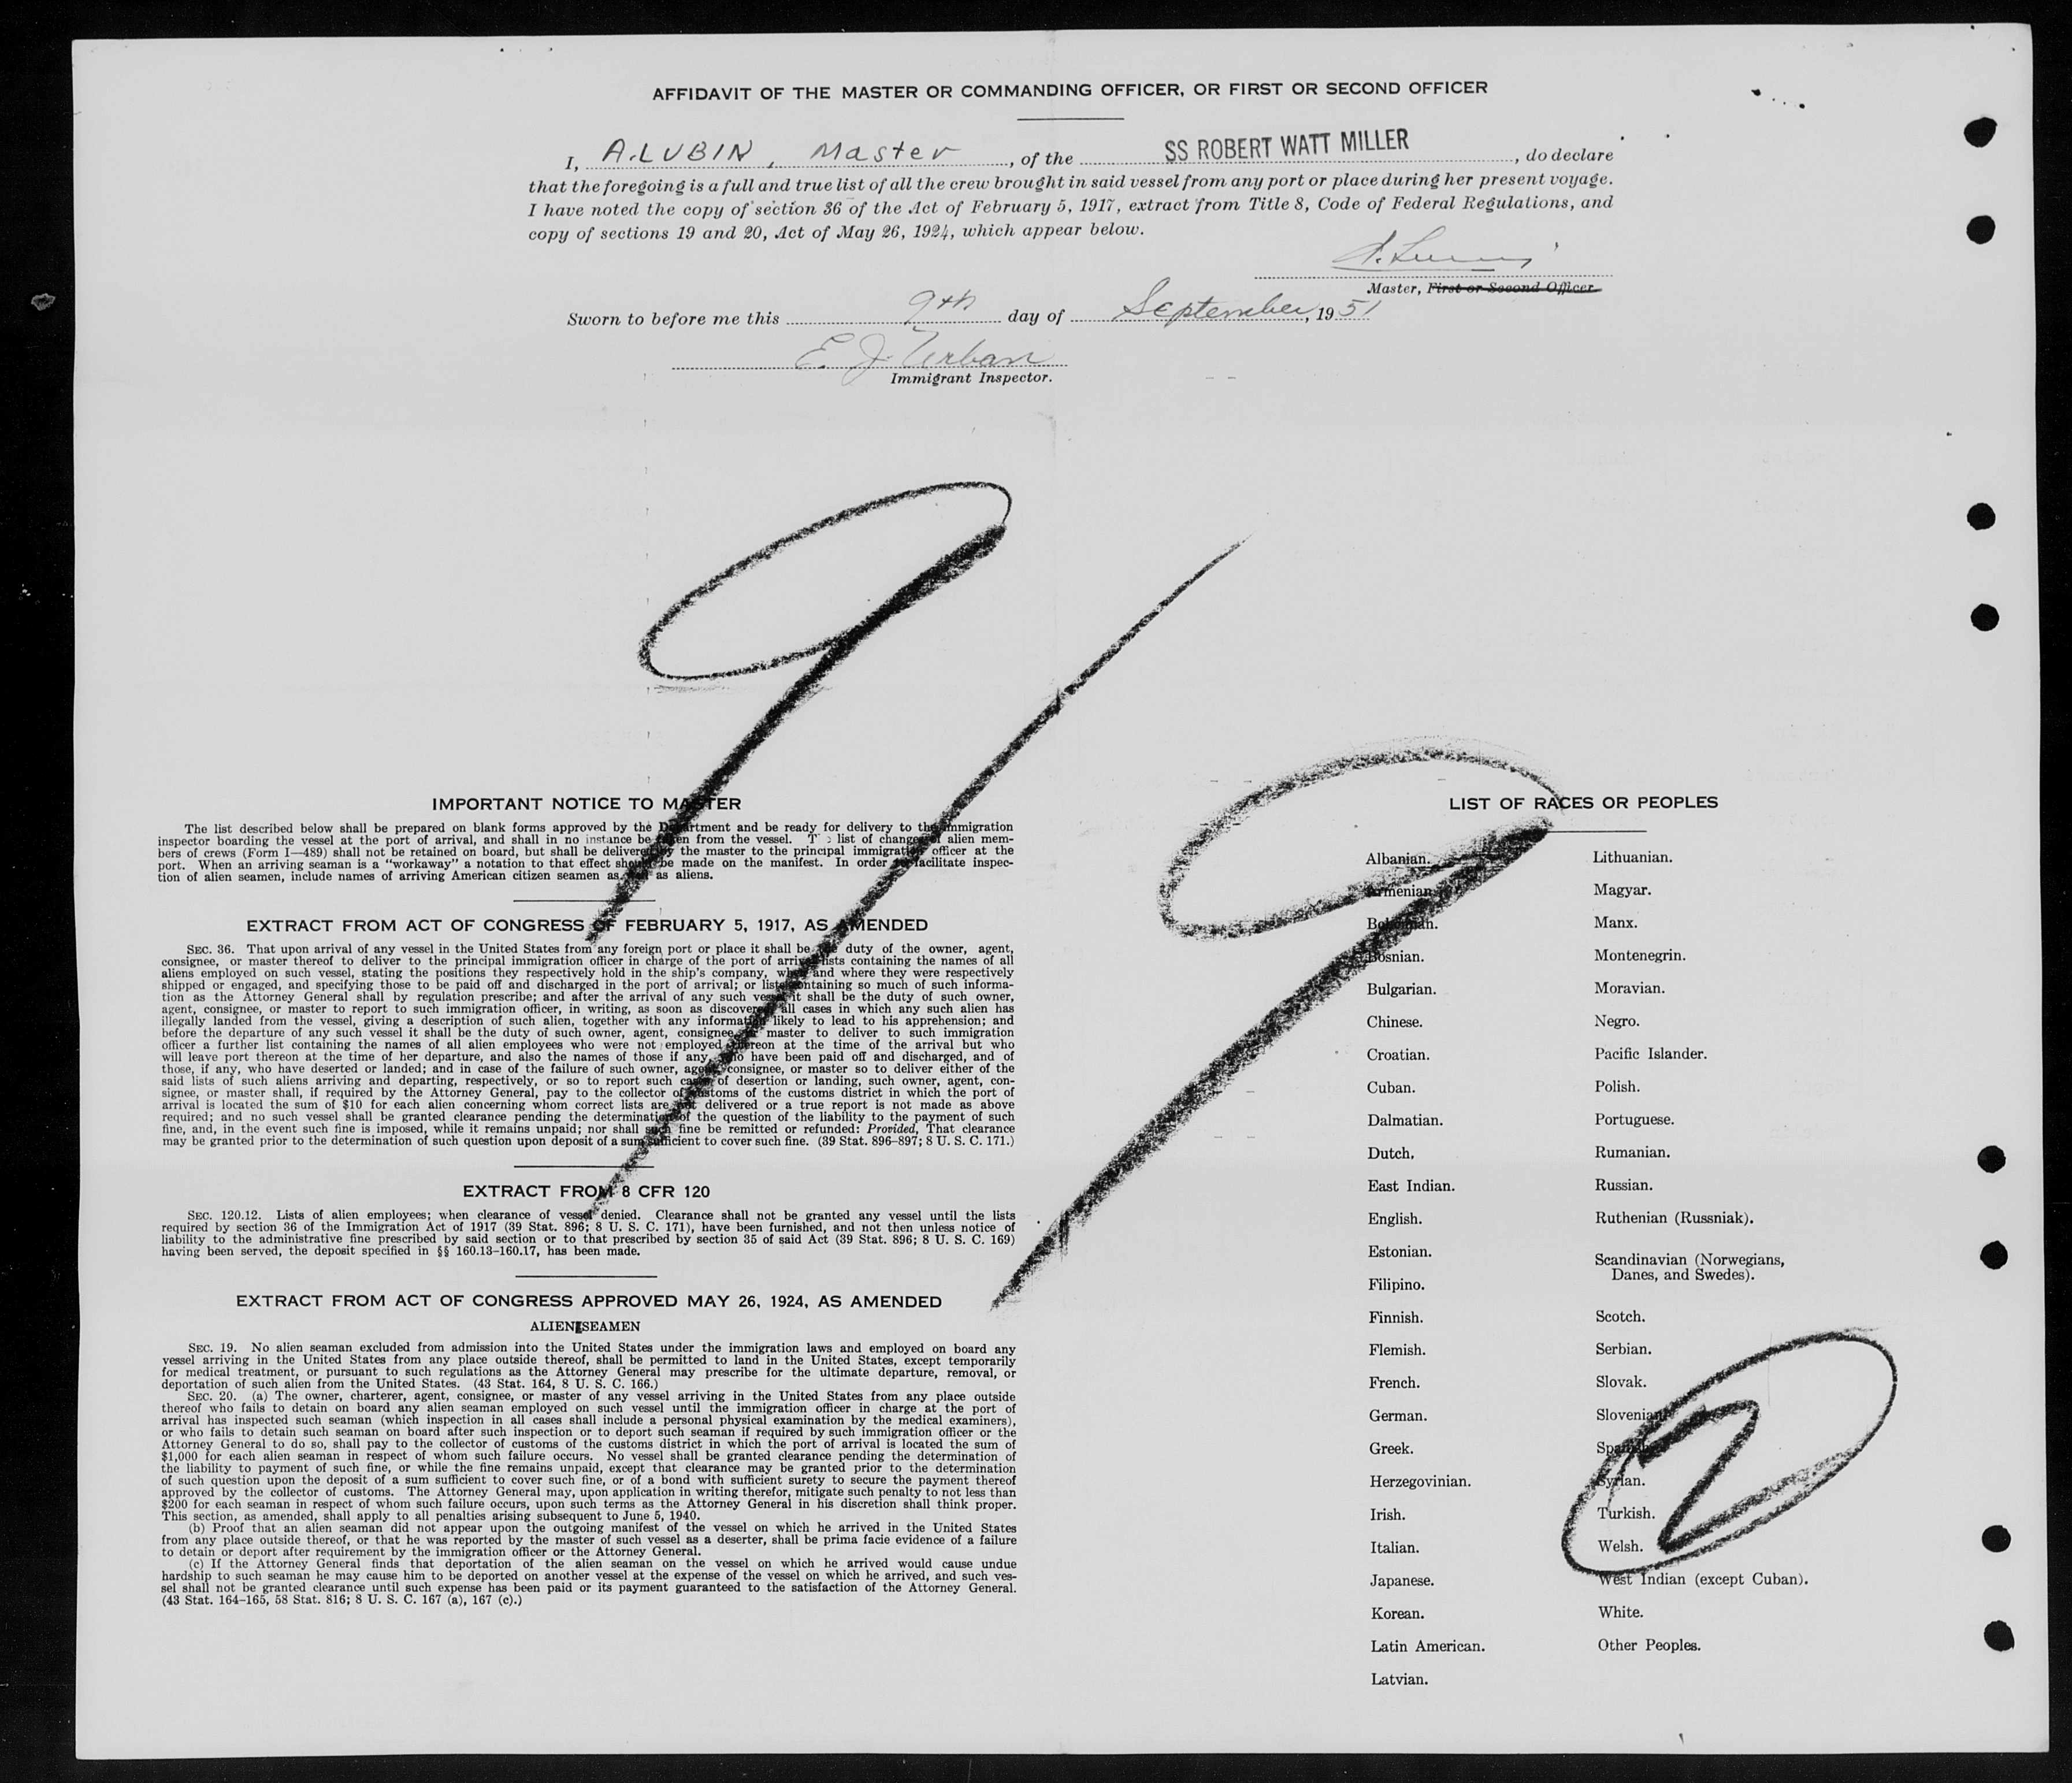 AFFIDAVIT OF THE MASTER OR COMMANDING OFFICER, OR FIRST OR SECOND OFFICER
I, A. LUBIN, Master, of the SS ROBERT WATT MILLER, do declare
that the foregoing is a full and true list of all the crew brought in said vessel from any port or place during her present voyage.
I have noted the copy of section 36 of the Act of February 5, 1917, extract from Title 8, Code of Federal Regulations, and
copy of sections 19 and 20, Act of May 26, 1924, which appear below.
Master, First or Second Officer
Sworn to before me this 9th day of September, 1951
E. J. Urban
Immigrant Inspector.
9/9
IMPORTANT NOTICE TO MASTER
The list described below shall be prepared on blank forms approved by the Department and be ready for delivery to the immigration
inspector boarding the vessel at the port of arrival, and shall in no instance be taken from the vessel. list of changes of alien mem-
bers of crews (Form I—489) shall not be retained on board, but shall be delivered by the master to the principal immigration officer at the
port. When an arriving seaman is a “workaway” a notation to that effect should be made on the manifest. In order to facilitate inspec-
tion of alien seamen, include names of arriving American citizen seamen as well as aliens.
EXTRACT FROM ACT OF CONGRESS OF FEBRUARY 5, 1917, AS AMENDED
SEC. 36. That upon arrival of any vessel in the United States from any foreign port or place it shall be the duty of the owner, agent,
consignee, or master thereof to deliver to the principal immigration officer in charge of the port of arrival lists containing the names of all
aliens employed on such vessel, stating the positions they respectively hold in the ship's company, when and where they were respectively
shipped or engaged, and specifying those to be paid off and discharged in the port of arrival; or lists containing so much of such informa-
tion as the Attorney General shall by regulation prescribe; and after the arrival of any such vessel it shall be the duty of such owner,
agent, consignee, or master to report to such immigration officer, in writing, as soon as discovered, all cases in which any such alien has
illegally landed from the vessel, giving a description of such alien, together with any information likely to lead to his apprehension; and
before the departure of any such vessel it shall be the duty of such owner, agent, consignee, or master to deliver to such immigration
officer a further list containing the names of all alien employees who were not employed thereon at the time of the arrival but who
will leave port thereon at the time of her departure, and also the names of those if any, who have been paid off and discharged, and of
those, if any, who have deserted or landed; and in case of the failure of such owner, agent, consignee, or master so to deliver either of the
said lists of such aliens arriving and departing, respectively, or so to report such cases of desertion or landing, such owner, agent, con-
signee, or master shall, if required by the Attorney General, pay to the collector of customs of the customs district in which the port of
arrival is located the sum of $10 for each alien concerning whom correct lists are not delivered or a true report is not made as above
required; and no such vessel shall be granted clearance pending the determination of the question of the liability to the payment of such
fine, and, in the event such fine is imposed, while it remains unpaid; nor shall such fine be remitted or refunded: Provided, That clearance
may be granted prior to the determination of such question upon deposit of a sum sufficient to cover such fine. (39 Stat. 896–897; 8 U. S. C. 171.)
EXTRACT FROM 8 CFR 120
SEC. 120.12. Lists of alien employees; when clearance of vessel denied. Clearance shall not be granted any vessel until the lists
required by section 36 of the Immigration Act of 1917 (39 Stat. 896; 8 U. S. C. 171), have been furnished, and not then unless notice of
liability to the administrative fine prescribed by said section or to that prescribed by section 35 of said Act (39 Stat. 896; 8 U. S. C. 169)
having been served, the deposit specified in §§ 160.13–160.17, has been made.
EXTRACT FROM ACT OF CONGRESS APPROVED MAY 26, 1924, AS AMENDED
ALIEN SEAMEN
SEC. 19. No alien seaman excluded from admission into the United States under the immigration laws and employed on board any
vessel arriving in the United States from any place outside thereof, shall be permitted to land in the United States, except temporarily
for medical treatment, or pursuant to such regulations as the Attorney General may prescribe for the ultimate departure, removal, or
deportation of such alien from the United States. (43 Stat. 164, 8 U. S. C. 166.)
SEC. 20. (a) The owner, charterer, agent, consignee, or master of any vessel arriving in the United States from any place outside
thereof who fails to detain on board any alien seaman employed on such vessel until the immigration officer in charge at the port of
arrival has inspected such seaman (which inspection in all cases shall include a personal physical examination by the medical examiners),
or who fails to detain such seaman on board after such inspection or to deport such seaman if required by such immigration officer or the
Attorney General to do so, shall pay to the collector of customs of the customs district in which the port of arrival is located the sum of
$1,000 for each alien seaman in respect of whom such failure occurs. No vessel shall be granted clearance pending the determination of
the liability to payment of such fine, or while the fine remains unpaid, except that clearance may be granted prior to the determination
of such question upon the deposit of a sum sufficient to cover such fine, or of a bond with sufficient surety to secure the payment thereof
approved by the collector of customs. The Attorney General may, upon application in writing therefor, mitigate such penalty to not less than
$200 for each seaman in respect of whom such failure occurs, upon such terms as the Attorney General in his discretion shall think proper.
This section, as amended, shall apply to all penalties arising subsequent to June 5, 1940.
(b) Proof that an alien seaman did not appear upon the outgoing manifest of the vessel on which he arrived in the United States
from any place outside thereof, or that he was reported by the master of such vessel as a deserter, shall be prima facie evidence of a failure
to detain or deport after requirement by the immigration officer or the Attorney General.
(c) If the Attorney General finds that deportation of the alien seaman on the vessel on which he arrived would cause undue
hardship to such seaman he may cause him to be deported on another vessel at the expense of the vessel on which he arrived, and such ves-
sel shall not be granted clearance until such expense has been paid or its payment guaranteed to the satisfaction of the Attorney General.
(43 Stat. 164–165, 58 Stat. 816; 8 U. S. C. 167 (a), 167 (c).)
LIST OF RACES OR PEOPLES
Albanian.
Armenian.
Bohemian.
Bosnian.
Bulgarian.
Chinese.
Croatian.
Cuban.
Dalmatian.
Dutch.
East Indian.
English.
Estonian.
Filipino.
Finnish.
Flemish.
French.
German.
Greek.
Herzegovinian.
Irish.
Italian.
Japanese.
Korean.
Latin American.
Latvian.
Lithuanian.
Magyar.
Manx.
Montenegrin.
Moravian.
Negro.
Pacific Islander.
Polish.
Portuguese.
Rumanian.
Russian.
Ruthenian (Russniak).
Scandinavian (Norwegians,
Danes, and Swedes).
Scotch.
Serbian.
Slovak.
Slovenian.
Spanish.
Syrian.
Turkish.
Welsh.
West Indian (except Cuban).
White.
Other Peoples.
2